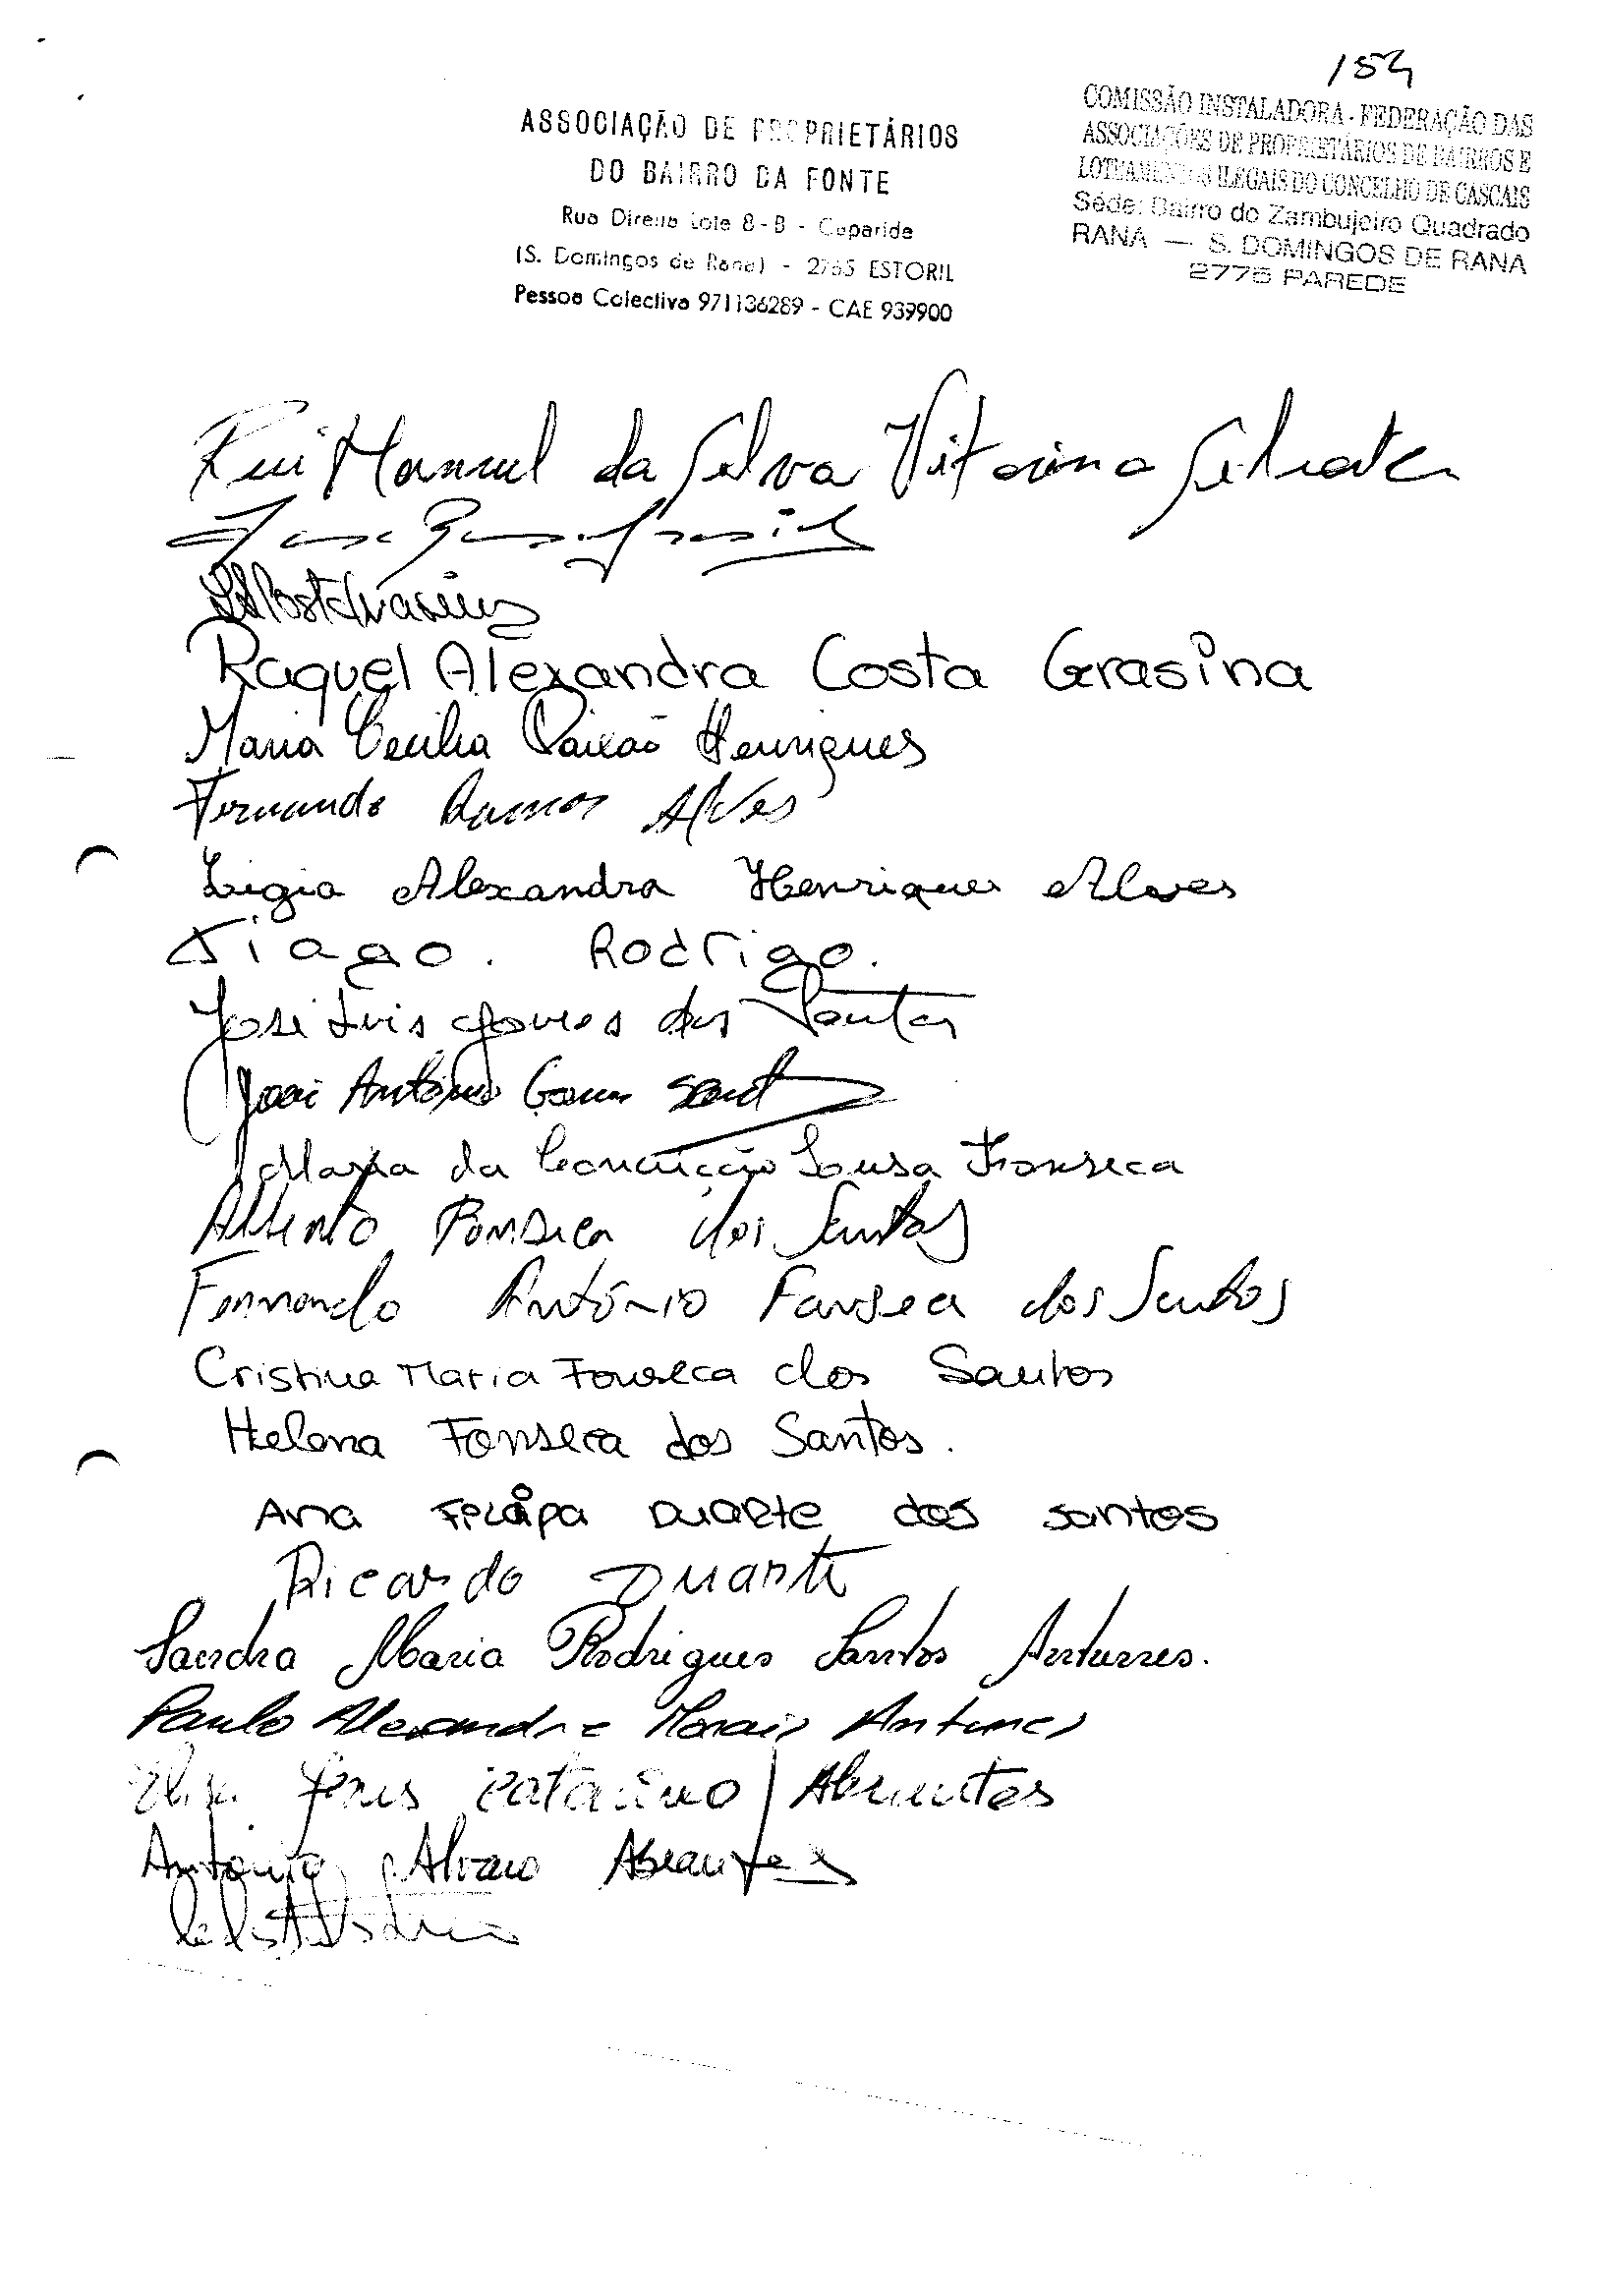 154
ASSOCIAÇÃO DE PROPRIETÁRIOS
DO BAIRRO DA FONTE
Rua Direita Lote 8-B - Caparide
(S. Domingos de Rana) - 2765 ESTORIL
Pessoa Colectiva 971136289 - CAE 939900
COMISSÃO INSTALADORA - FEDERAÇÃO DAS
ASSOCIAÇÕES DE PROPRIETÁRIOS DE BAIRROS E
LOTEAMENTOS ILEGAIS DO CONCELHO DE CASCAIS
Séde: Bairro do Zambujeiro Quadrado
RANA — S. DOMINGOS DE RANA
2775 PAREDE
Rui Manuel da Silva Vitorino
Raquel Alexandra Costa Grasina
Maria Cecilia Paixão Henriques
Fernando Ramos Alves
Ligia Alexandra Henriques Alves
Tiago. Rodrigo.
José Luis Gomes dos Santos
António Gomes
Maria da Conceição Sousa Fonseca
Alberto Fonseca dos Santos
Fernando António Fonseca dos Santos
Cristina Maria Fonseca dos Santos
Helena Fonseca dos Santos.
Ana Filipa Duarte dos santos
Ricardo Duarte
Sandra Maria Rodrigues Santos Antunes.
Paulo Alexandre Morais Antunes
Catarino Abrantes
António Alvaro Abrantes